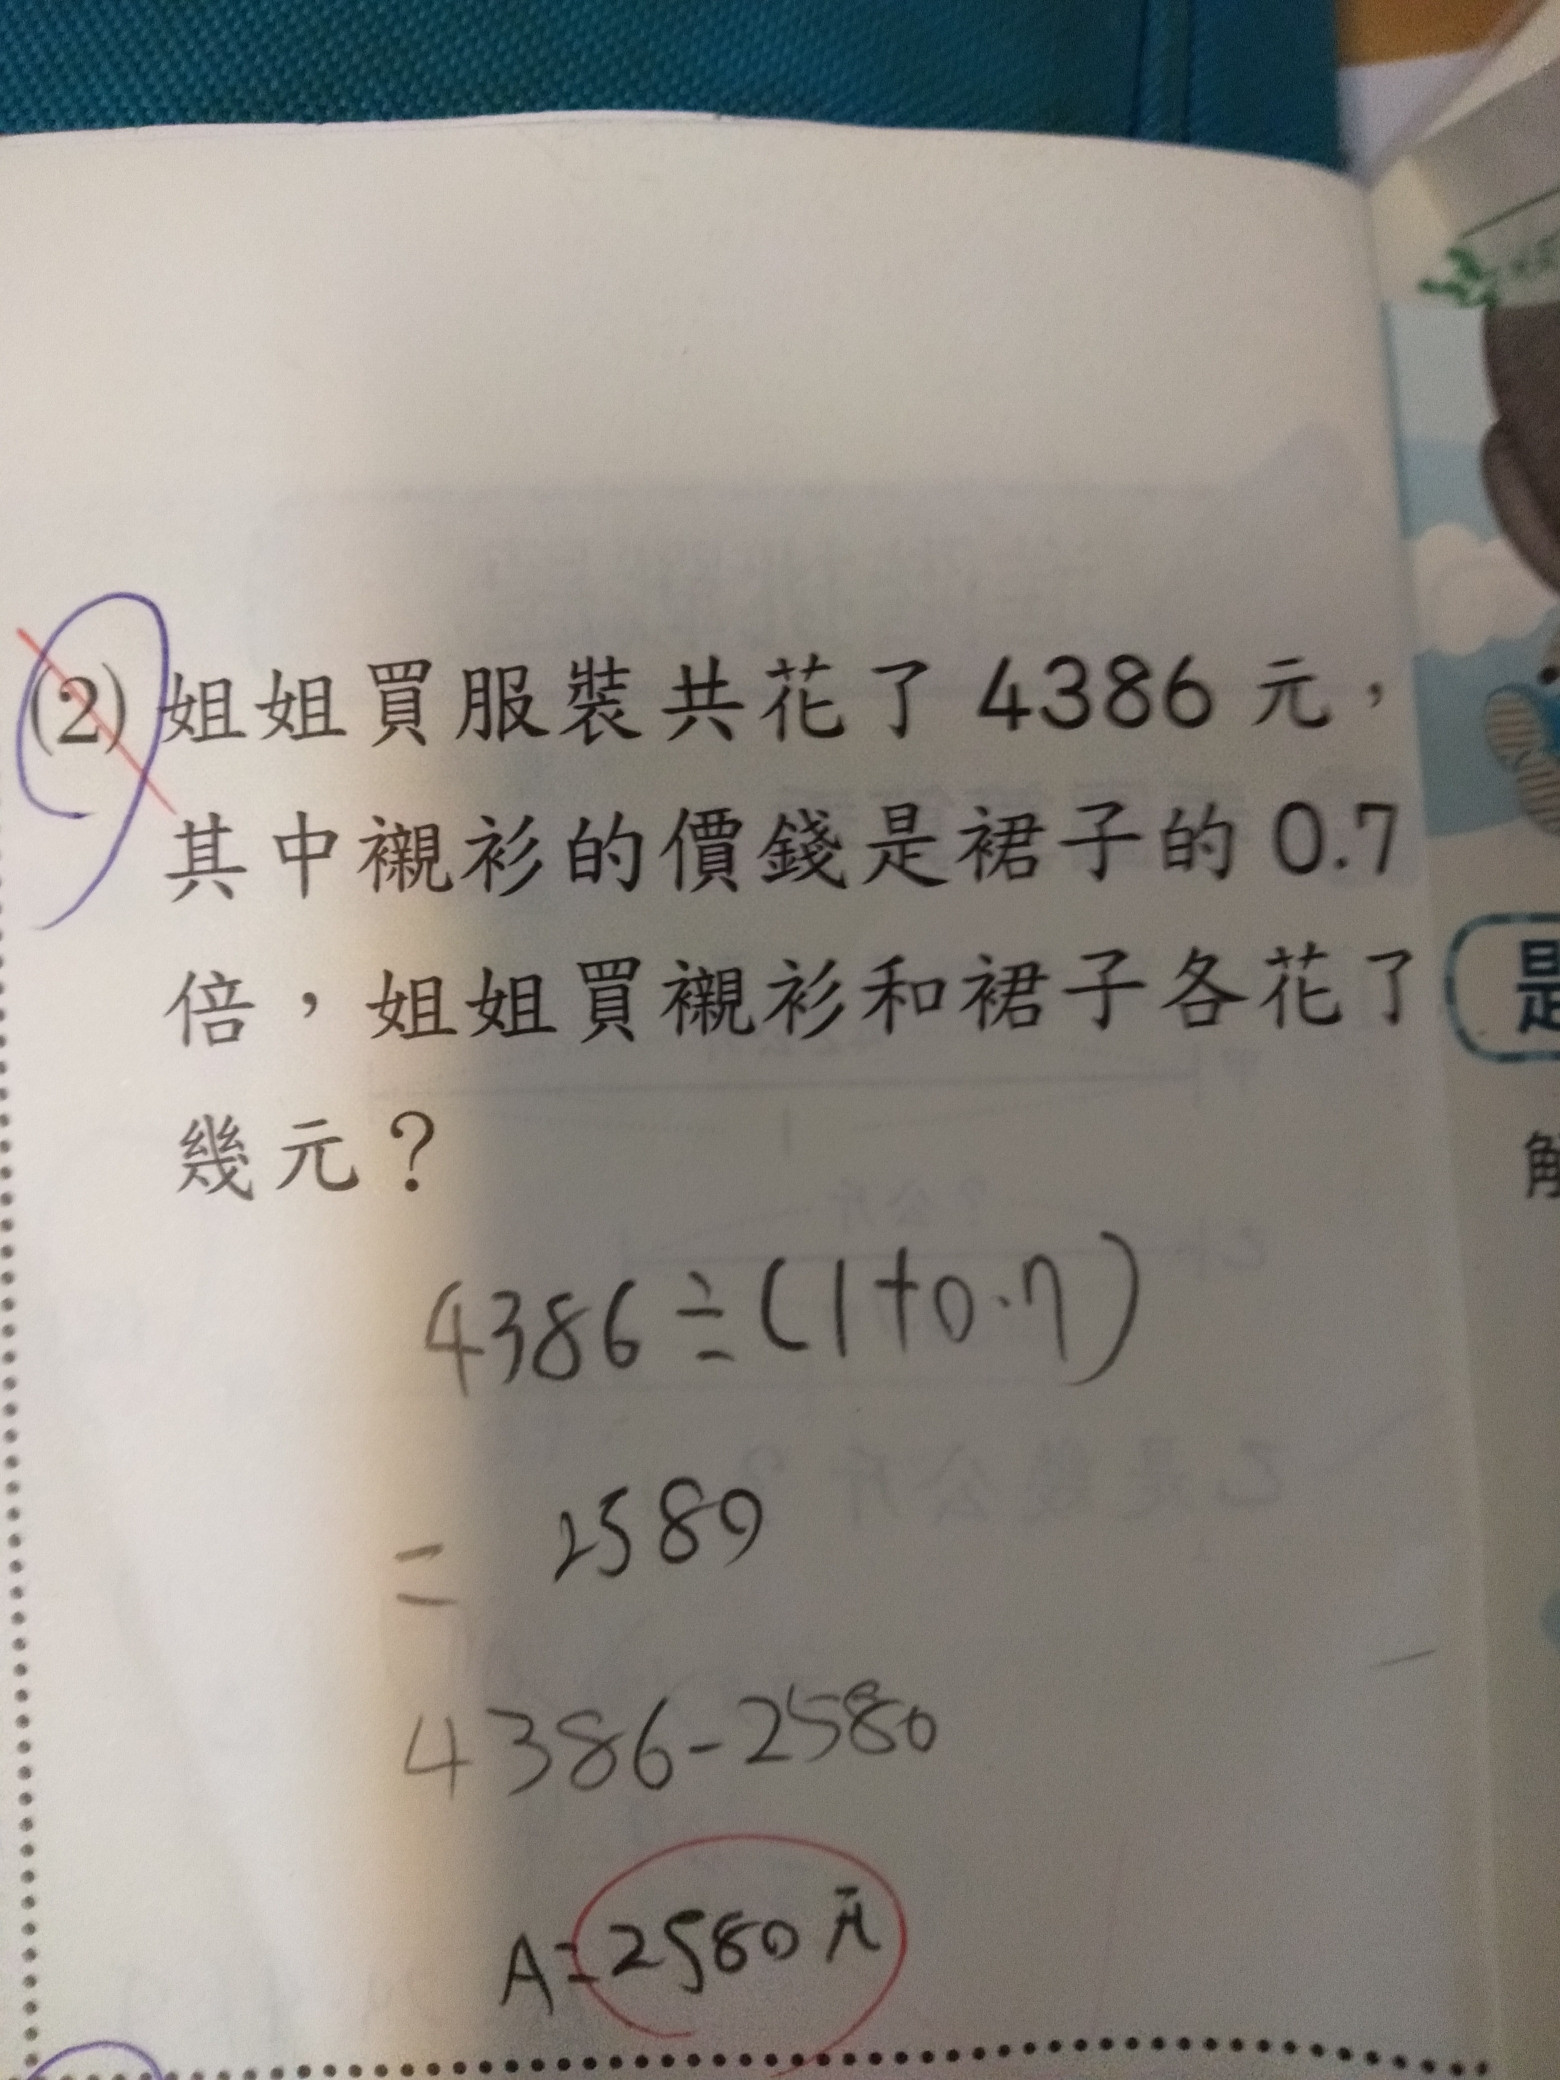 (2) 姐姐買服裝共花了 4386 元，
其中襯衫的價錢是裙子的 0.7
倍，姐姐買襯衫和裙子各花了
幾元？
4386÷(1+0.7)
= 2580
4386-2580
A=2580元
是
解